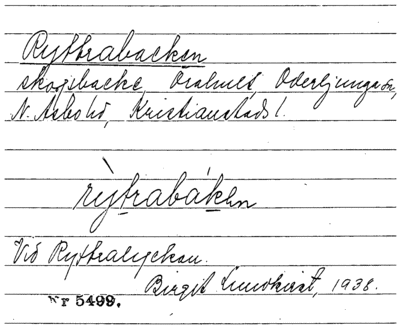 Ryttrabacken
skogsbacke, Oralult, Oderljunga sn,
N. Åsbo hd, Kristianstads l.
rỳtrabákən
Vid Ryttralyckan.
Birgit Lundkvist, 1938.
Nr 5499.